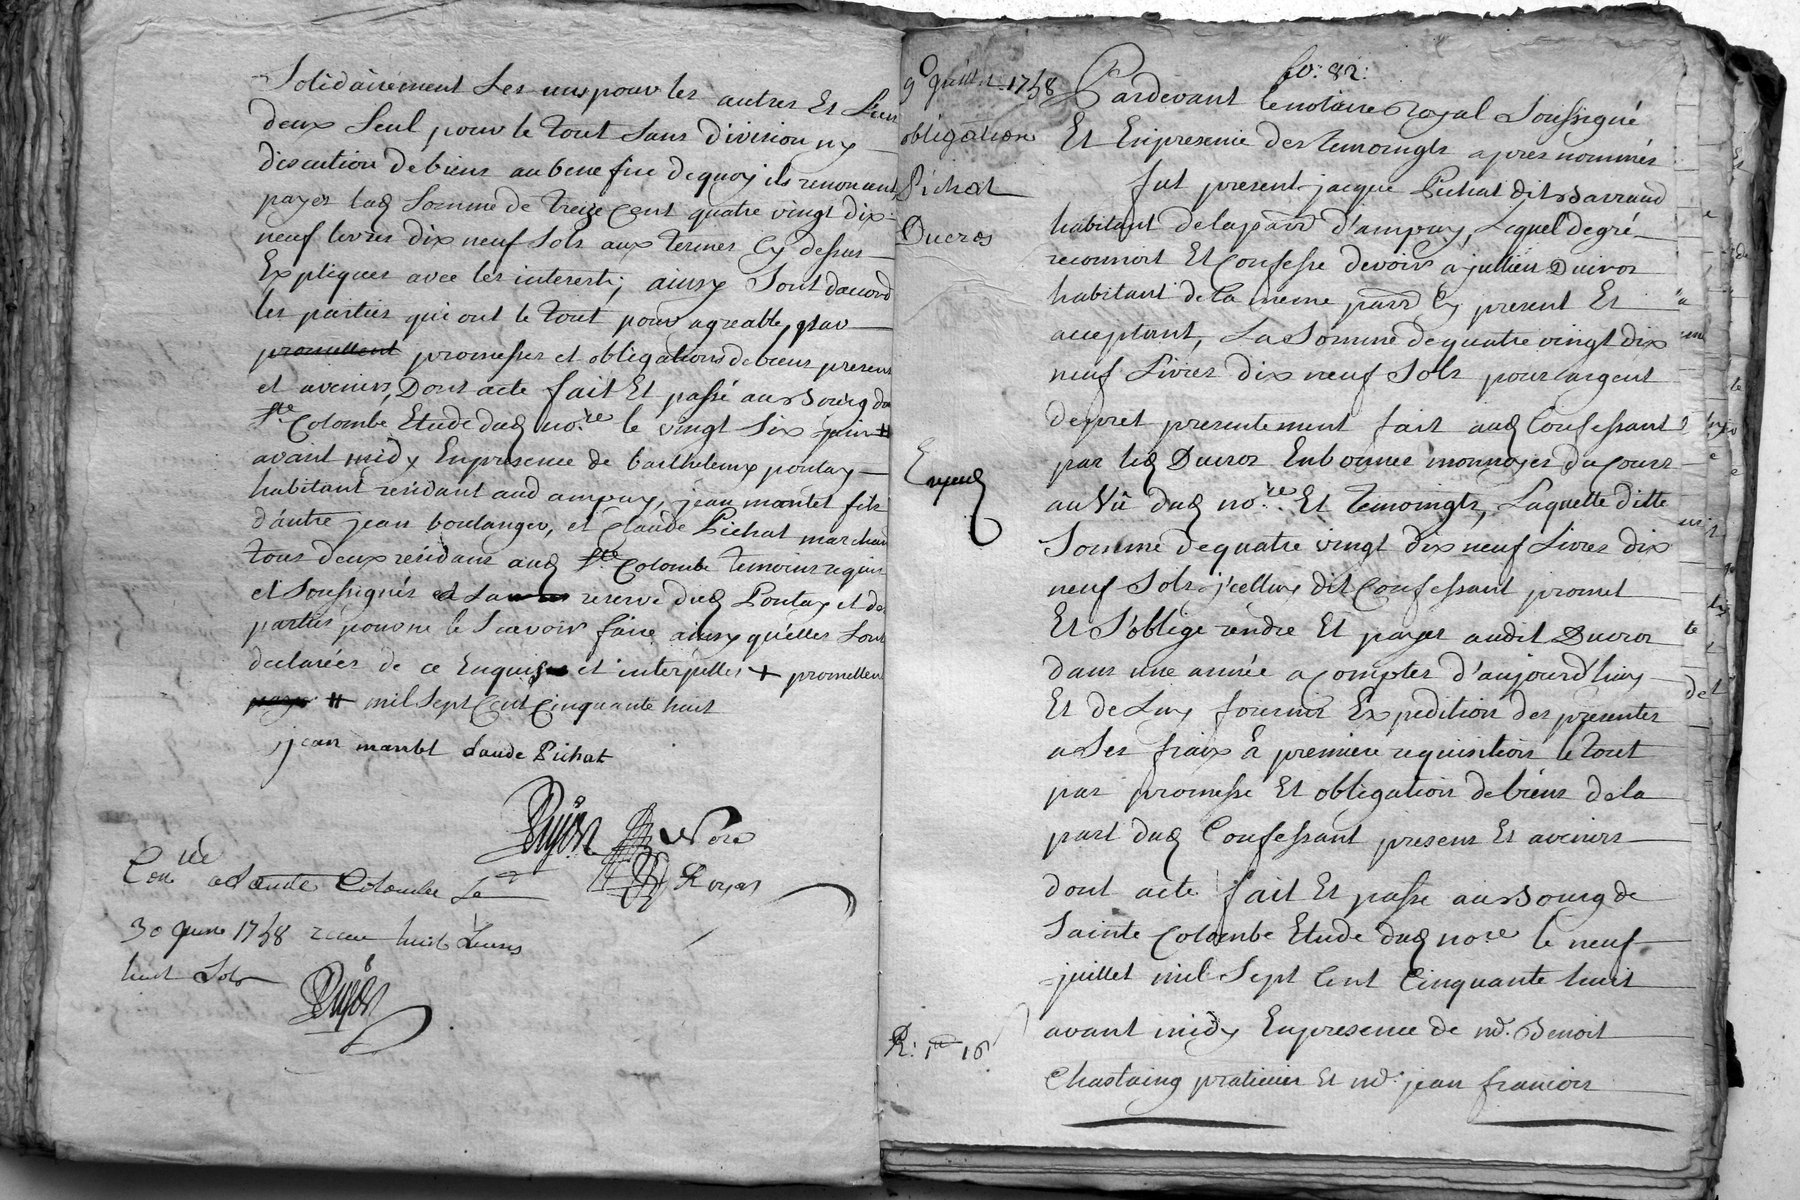 Solidairement Les uns pour les autres Et L'un
deux Seul pour le Tout Sans division ny
discution de biens au benefice dequoy ils renoncent,
payer lad Somme de treize Cent quatre vingt dix
neuf livres dix neuf Sols aux termes Cy dessus
Expliqués avec les interests; ainsy Sont daccord
les parties qui ont le Tout pour agreable, par
promettent promesses et obligations de biens presens
et avenirs, Dont acte fait Et passé au Bourg de
Ste Colombe Etude dud no.re le vingt Six juin #
avant midy En presence de barthelemy pontay
habitant residant aud ampuy, jean mantet fils
d'autre jean boulanger, et Claude Pichat marchand
tous deux residans aud Ste Colombe temoins requis
et Soussignés reserve dud Pontay et des
parties pour ne le Scavoir faire ainsy qu'elles Sont
declarées de ce Enquis et interpellés + promettent
# mil Sept Cent Cinquante huit
jean mantet Claude Pichat
Dujon Nore
Royal
Con.lle a Sainte Colombe Le
30 Juin 1758 receu huit Livres
huit Sols
Dujon
fo: 82:
9e Juill.t 1758
obligation
Pichat
Ducros
Expedié
R: 1tt 16s
Pardevant le notaire Royal Soussigné
Et En presence des temoingts apres nommés
fut present jacque Pichat dit Barraud
habitant de la parr d'ampuy, Lequel de gré
reconnoit Et Confesse devoir a jullien Ducros
habitant de la meme parr Cy present Et
acceptant, La Somme de quatre vingt dix
neuf Livres dix neuf Sols pour argent
de pret presentement fait aud Confessant
par led Ducros En bonnes monnoyes du Cours
au Vû dud no.re Et temoingts, Laquelle ditte
Somme de quatre vingt dix neuf Livres dix
neuf Sols icelluy dit Confessant promet
Et S'oblige rendre Et payer audit Ducros
dans une année a compter d'aujourd'huy
Et de Luy fournir Expedition des presentes
a Ses fraix a premiere requisition le Tout
par promesse Et obligation de biens de la
part dud Confessant presens Et avenirs
dont acte fait Et passé au Bourg de
Sainte Colombe Etude dud no.re le neuf
juillet mil Sept Cent Cinquante huit
avant midy En presence de md. Benoit
Chastaing praticien Et md. jean francois